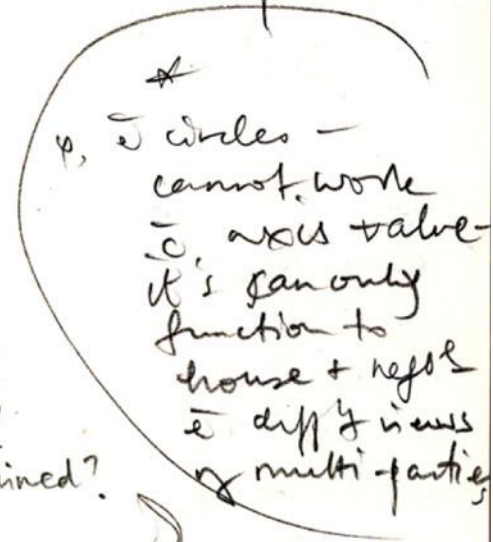 c̄ circles –
cannot work
c̄ axis + value –
it's can only
function to
house + negot
c̄ diff'g views
of multi-parties
ined?